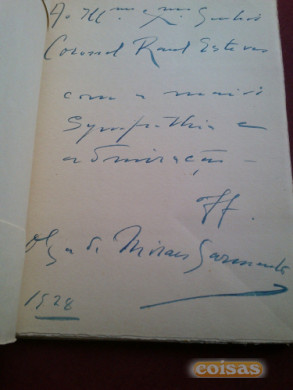 Ao Illmo Exmo Senhor
Coronel Raul Esteves
com a maior
Sympathia e
admiração –
Off.
Olga de Moraes Sarmento
1928
coisas